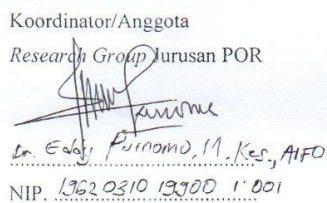 Koordinator/Anggota
Research Group Jurusan POR
Dr. Eddy Purnomo, M. Kes., AIFO
NIP. 19620310 19900 1 001